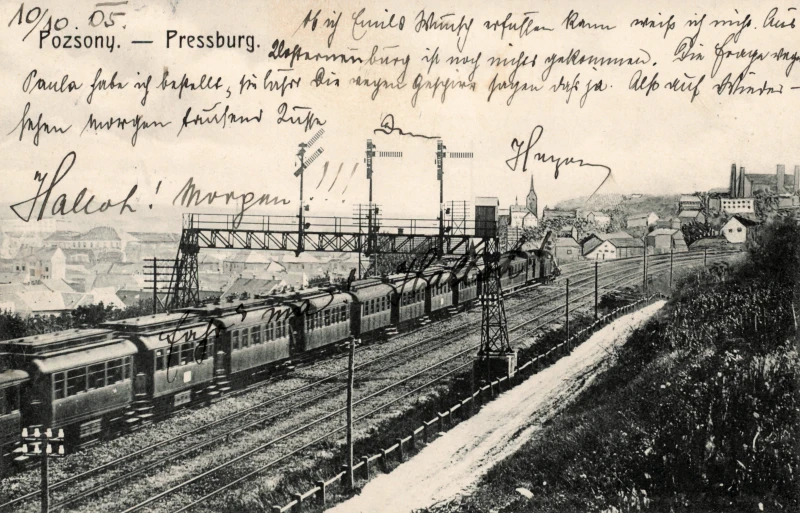 10/10. 05.
Pozsony. — Pressburg.
Ob ich Emils Wunsch erfüllen kann weiß ich nicht. Aus
Klosterneuburg ist noch nichts gekommen. Die Frage wegen
Paula habe ich bestellt, sie läßt Die wegen Geschirr sagen daß ja. Also auf Wieder-
sehen morgen tausend Küsse
Halloh! Morgen!!!